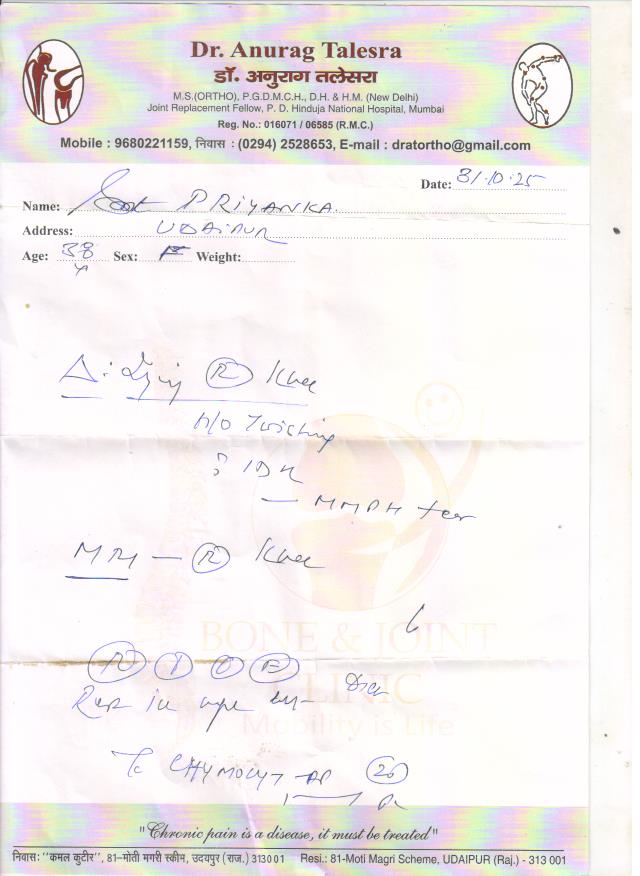 Dr. Anurag Talesra
डॉ. अनुराग तलेसरा
M.S.(ORTHO), P.G.D.M.C.H., D.H. & H.M. (New Delhi)
Joint Replacement Fellow, P. D. Hinduja National Hospital, Mumbai
Reg. No.: 016071 / 06585 (R.M.C.)
Mobile : 9680221159, निवास : (0294) 2528653, E-mail : dratortho@gmail.com
Date: 31.10.25
Name: PRIYANKA
Address: UDAIPUR
Age: 38 y Sex: F Weight:
Δ: Injury (R) Knee
h/o Twisting
? IDK
— MMPH tear
MRI — (R) Knee
BONE & JOINT
CLINIC
Mobility is Life
(R) (I) (C) (E)
Rest in
CHYMOCYT 20
"Chronic pain is a disease, it must be treated"
निवास: ''कमल कुटीर'', 81–मोती मगरी स्कीम, उदयपुर (राज.) 313001 Resi.: 81-Moti Magri Scheme, UDAIPUR (Raj.) - 313 001